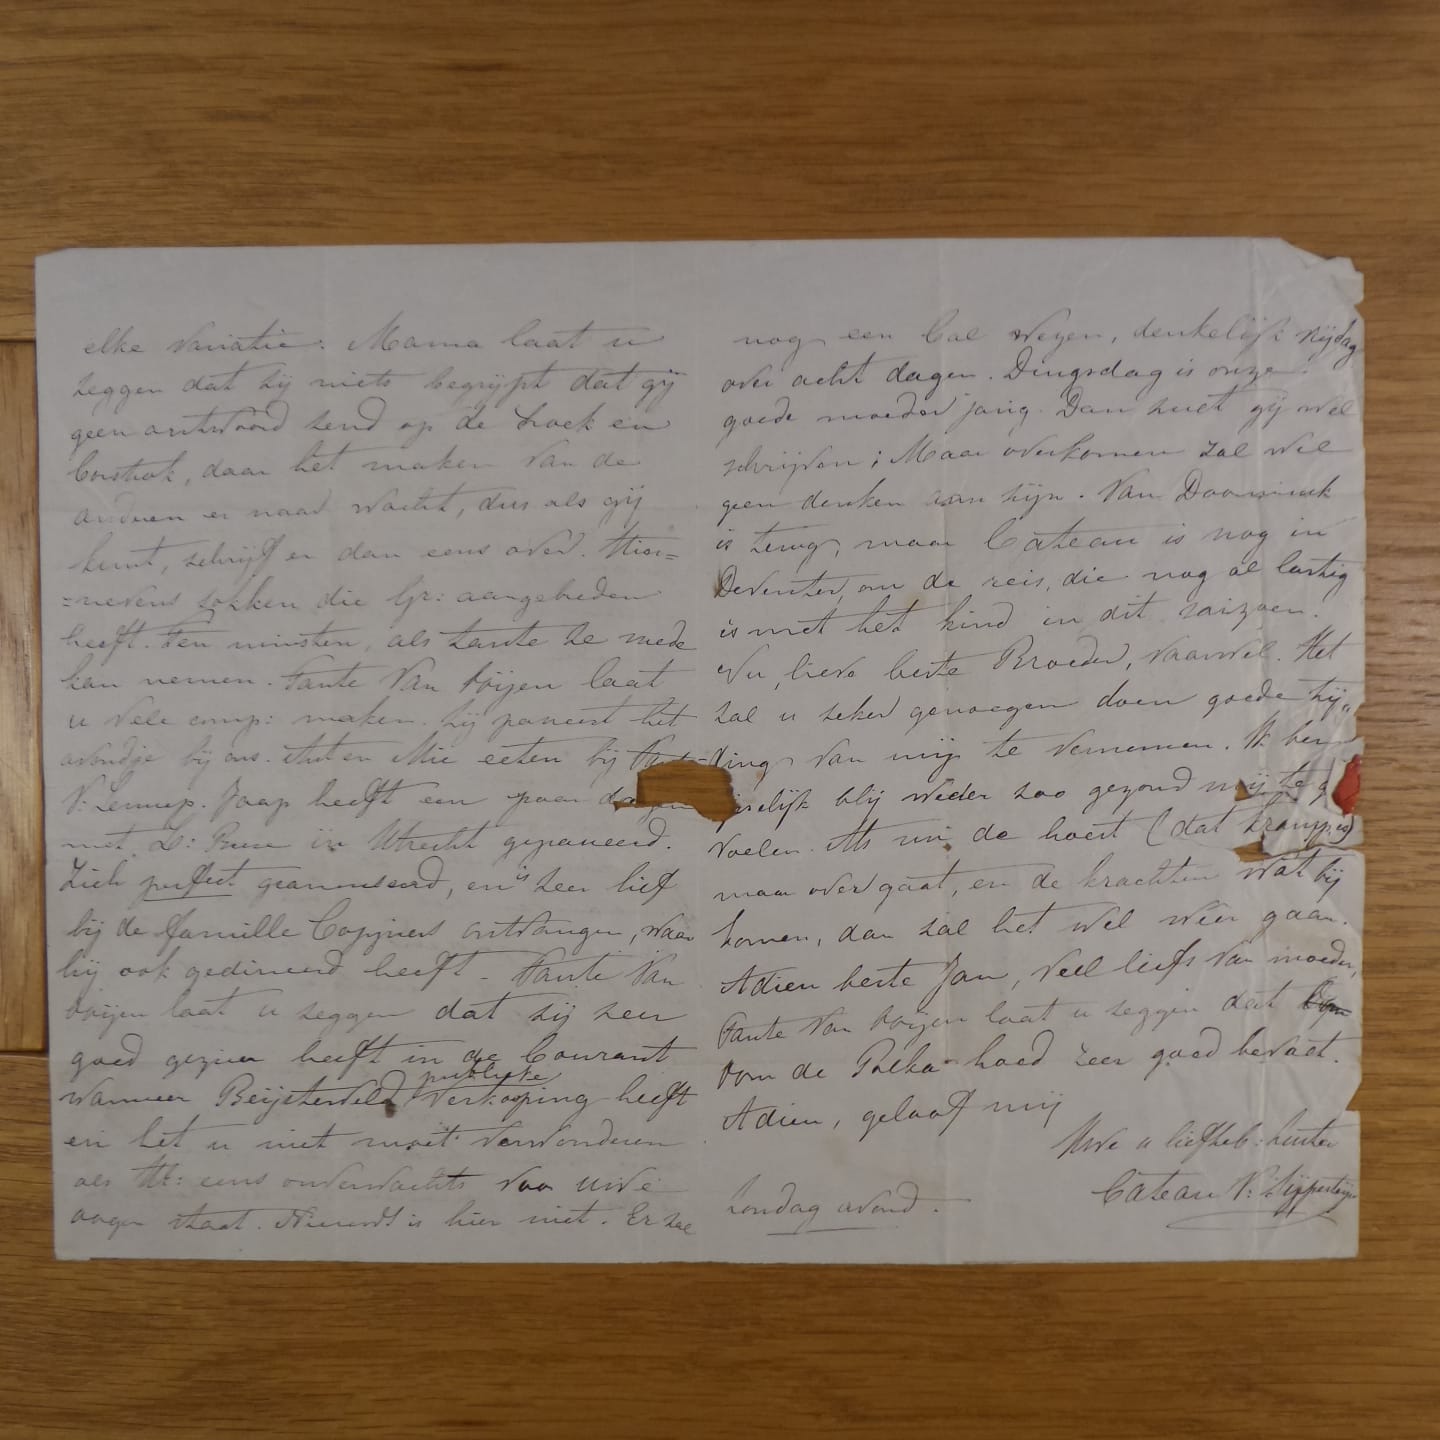 elke variatie. Mama laat u
zeggen dat zij niets begrijpt dat gij
geen antwoord zend op de hoek en
, daar het maken van de
anderen er naar wacht, dus als gij
kunt, schrijf er dan eens over. Hier=
=nevens sokken die Gr: aangebreden
heeft. Ten minsten, als tante ze mede
kan nemen. Tante Van Ooijen laat
u vele comp: maken. Zij passeert het
avondje bij ons. en Mie eeten bij
V: Lennep. Jaap heeft een paar dagen
met in Utrecht gepasseerd.
Zich perfect geamuseerd, en is zeer lief
bij de famille ontvangen, waar
hij ook gedineerd heeft - Tante Van
Ooijen laat u zeggen dat zij zeer
goed gezien heeft in de Courant
wanneer Beijsterveld publieke verkooping heeft
en het u niet moet verwonderen
als eens onverwachts voor uwe
oogen staat. Nieuws is hier niet. Er zal
nog een bal wezen, denkelijk vrijdag
over acht dagen. Dingsdag is onze
goede moeder jarig. Dan zult gij wel
schrijven; Maar overkomen zal wel
geen denken aan zijn. Van Doorninck
is terug, maar Cateau is nog in
Deventer, om de reis, die nog al lastig
is met het kind in dit saizoen.
Nu, lieve beste Broeder, vaarwel. Het
zal u zeker genoegen doen goede tij„
ding van mij te vernemen. Ik ben
blij weder zoo gezond mij te
voelen. Als nu de hoest (dat
maar over gaat, en de krachten wat bij
komen, dan zal het wel weer gaan.
Adieu beste Jan, veel liefs van moeder,
Tante Van Ooijen laat u zeggen dat
Oom de Polka-hoed zeer goed bevalt.
Adieu, geloof mij
Uwe u liefheb: zuster
Cateau V: Sijpesteijn
Zondag avond.